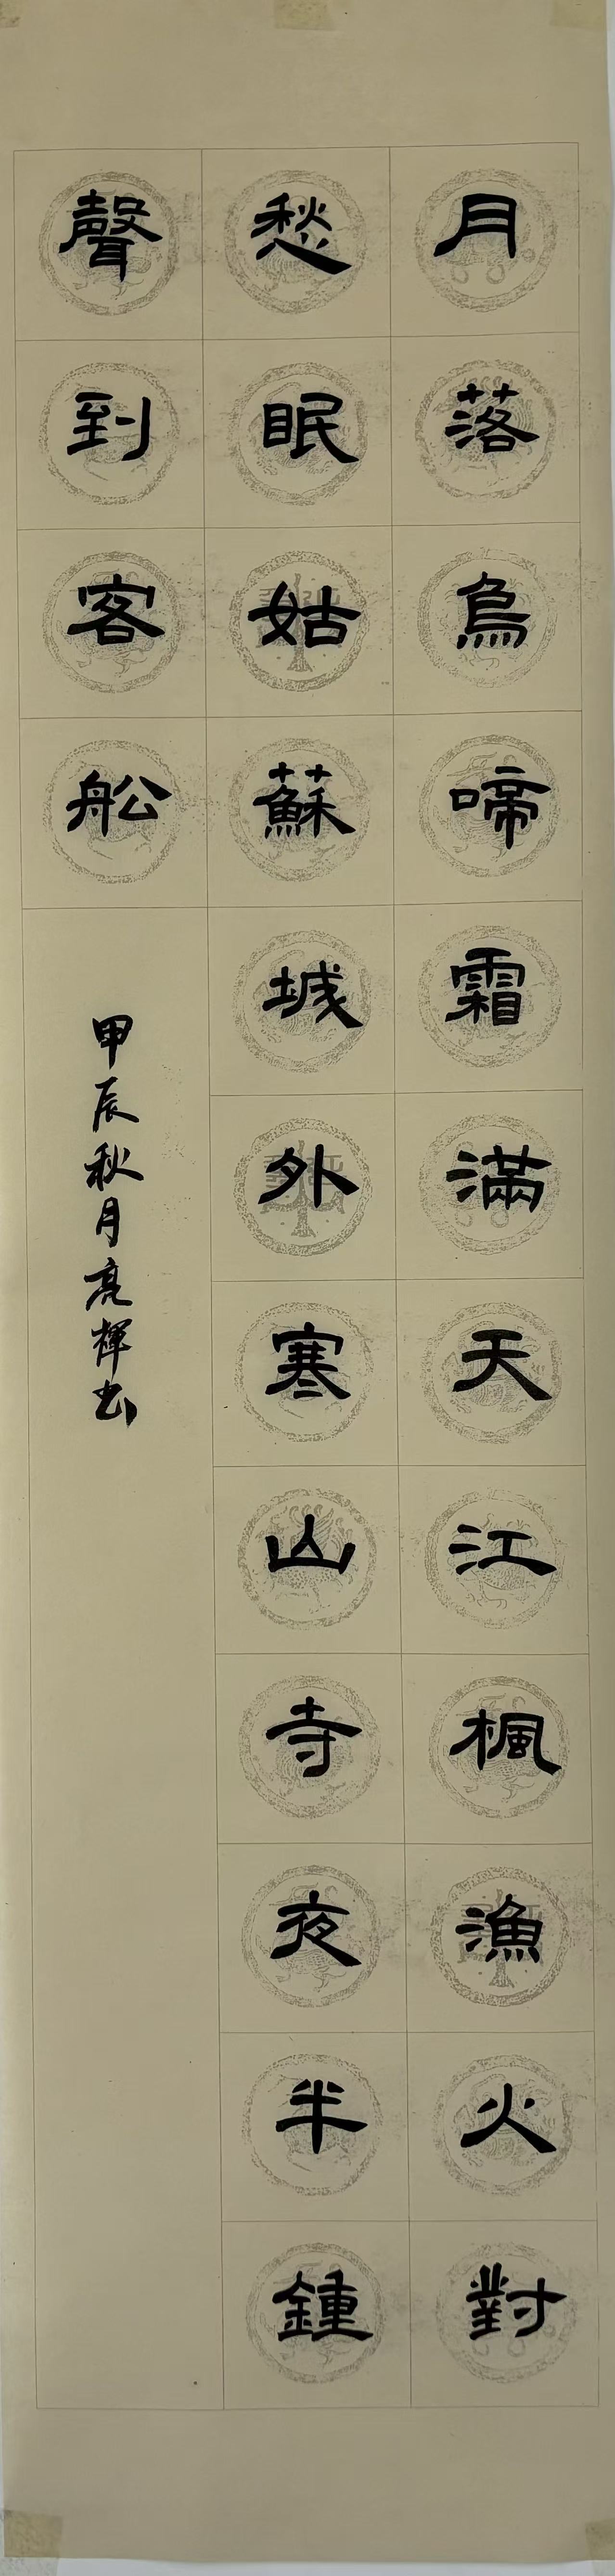 月落烏啼霜滿天江楓漁火對
愁眠姑蘇城外寒山寺夜半鍾
聲到客舩
甲辰秋月亮輝书